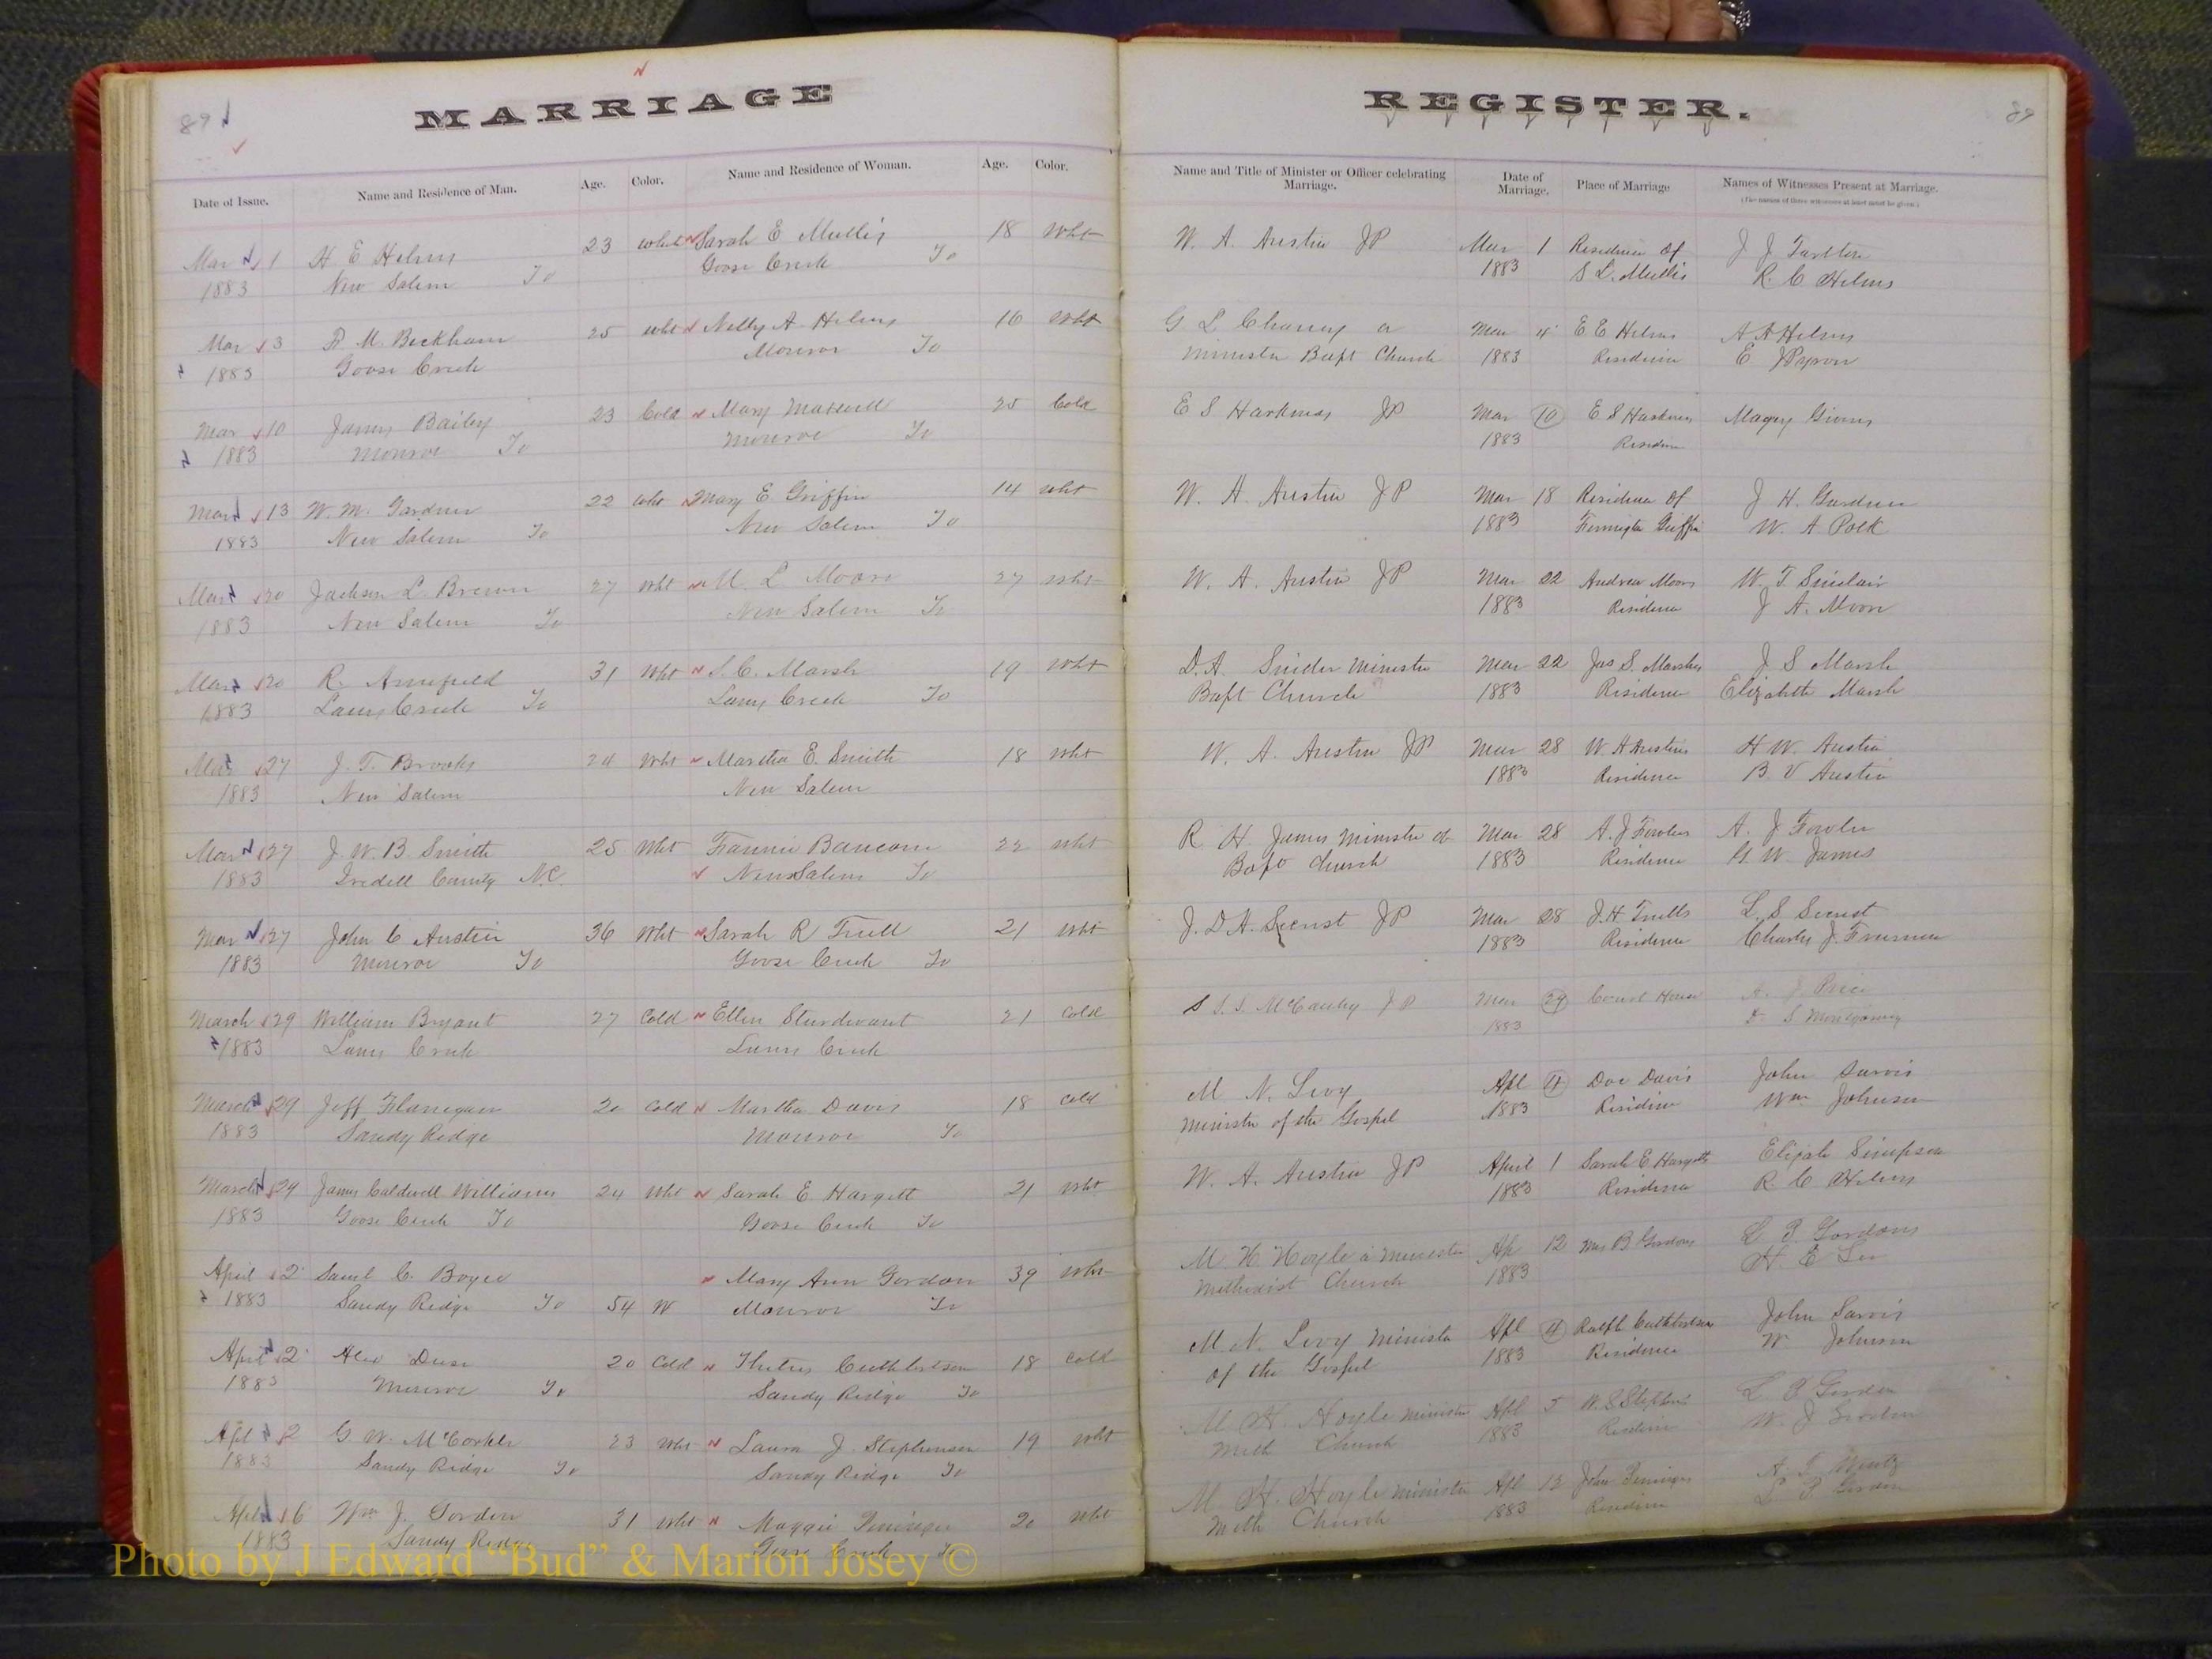 89
MARRIAGE
Date of Issue. Name and Residence of Man. Age. Color. Name and Residence of Woman. Age. Color.
Mar 1 H E Helms 23 White Sarah E Mullis 18 Wht
1883 New Salem To Goose Creek To
Mar 3 P. M. Beckham 25 Wht Nelly A. Helms 16 Wht
1883 Goose Creek Monroe To
Mar 10 James Bailey 23 Cold Mary Massey 25 Cold
1883 Monroe To Monroe To
Mar 13 W. M. Gardner 22 Wht Mary E. Griffin 14 Wht
1883 New Salem To New Salem To
Mar 20 Jackson L Brewer 27 Wht M. L Moore 27 Wht
1883 New Salem To New Salem To
Mar 20 R. Armfield 31 Wht S. C. Marsh 19 Wht
1883 Lanes Creek To Lanes Creek To
Mar 27 J. T. Brooks 24 Wht Martha E. Smith 18 Wht
1883 New Salem New Salem
Mar 27 J. W. B. Smith 25 Wht Fannie Baucom 22 Wht
1883 Iredell County N.C. New Salem To
Mar 27 John C Austin 36 Wht Sarah R Trull 21 Wht
1883 Monroe To Goose Creek To
March 29 William Bryant 27 Cold Ellen Sturdivant 21 Cold
1883 Lanes Creek Lanes Creek
March 29 Jeff Flanegan 20 Cold Martha Davis 18 Cold
1883 Sandy Ridge Monroe To
March 29 James Caldwell Williams 24 Wht Sarah E Hargett 21 Wht
1883 Goose Creek To Goose Creek To
April 2 Saml C. Boyce Mary Ann Gordon 39 Wht
1883 Sandy Ridge To 54 W Monroe To
April 2 Alex 20 Cold Cuthbertson 18 Cold
1883 Monroe To Sandy Ridge To
Apl 2 G W. McCorkle 23 Wht Laura J. Stephenson 19 Wht
1883 Sandy Ridge To Sandy Ridge To
April 6 Wm J. Gordon 31 Wht Maggie 20 Wht
1883 Sandy Ridge Goose Creek To
REGISTER.
89
Name and Title of Minister or Officer celebrating Marriage. Date of Marriage. Place of Marriage Names of Witnesses Present at Marriage.
(The names of three witnesses at least must be given.)
W. A. Austin JP Mar 1 Residence of J J Tarlton
1883 S L. Mullis R. C Helms
G L Chaney a Mar 4 E E Helms A A Helms
Minister Bapt Church 1883 Residence E J Pyron
E S Harkness JP Mar 10 E S Harkness Magey Givens
1883 Residence
W. A. Austin JP Mar 18 Residence of J H. Gardner
1883 Griffin W. A Polk
W. A. Austin JP Mar 22 Andrew Moores W. T. Sinclair
1883 Residence J A. Moore
D. A. Snider Minister Mar 22 Jas S. Marshes J S Marsh
Bapt Church 1883 Residence Elizabeth Marsh
W. A. Austin JP Mar 28 W A Austins H W. Austin
1883 Residence B. V Austin
R H James Minister of Mar 28 A. J Fowlers A. J Fowler
Bapt Church 1883 Residence G. W James
J. D. A. Secrest JP Mar 28 J. H. Trulls L. S. Secrest
1883 Residence Charles J. Freeman
S. S. S. McCauley JP Mar 29 Court House A. J Price
1883 S Montgomery
M N. Levy Apl 4 Doc Davis John Sarvis
Minister of the Gospel 1883 Residence Wm Johnson
W. A. Austin JP April 1 Sarah E Hargetts Elijah Simpson
1883 Residence R C Helms
M H Hoyle a Minister Ap 12 Mrs B Gordons L P Gordons
Methodist Church 1883 H. E Lee
M. N. Levy Minister Apl 4 Ralph Cuthbertson John Sarvis
of the Gospel 1883 Residence W Johnson
M H. Hoyle Minister Apl 5 W. S Stephens L P Gordon
Meth Church 1883 Residence W. J Gordon
M. H. Hoyle Minister Apl 12 John A. Wentz
Meth Church 1883 Residence L P Gordon
Photo by J Edward “Bud” & Marion Josey ©